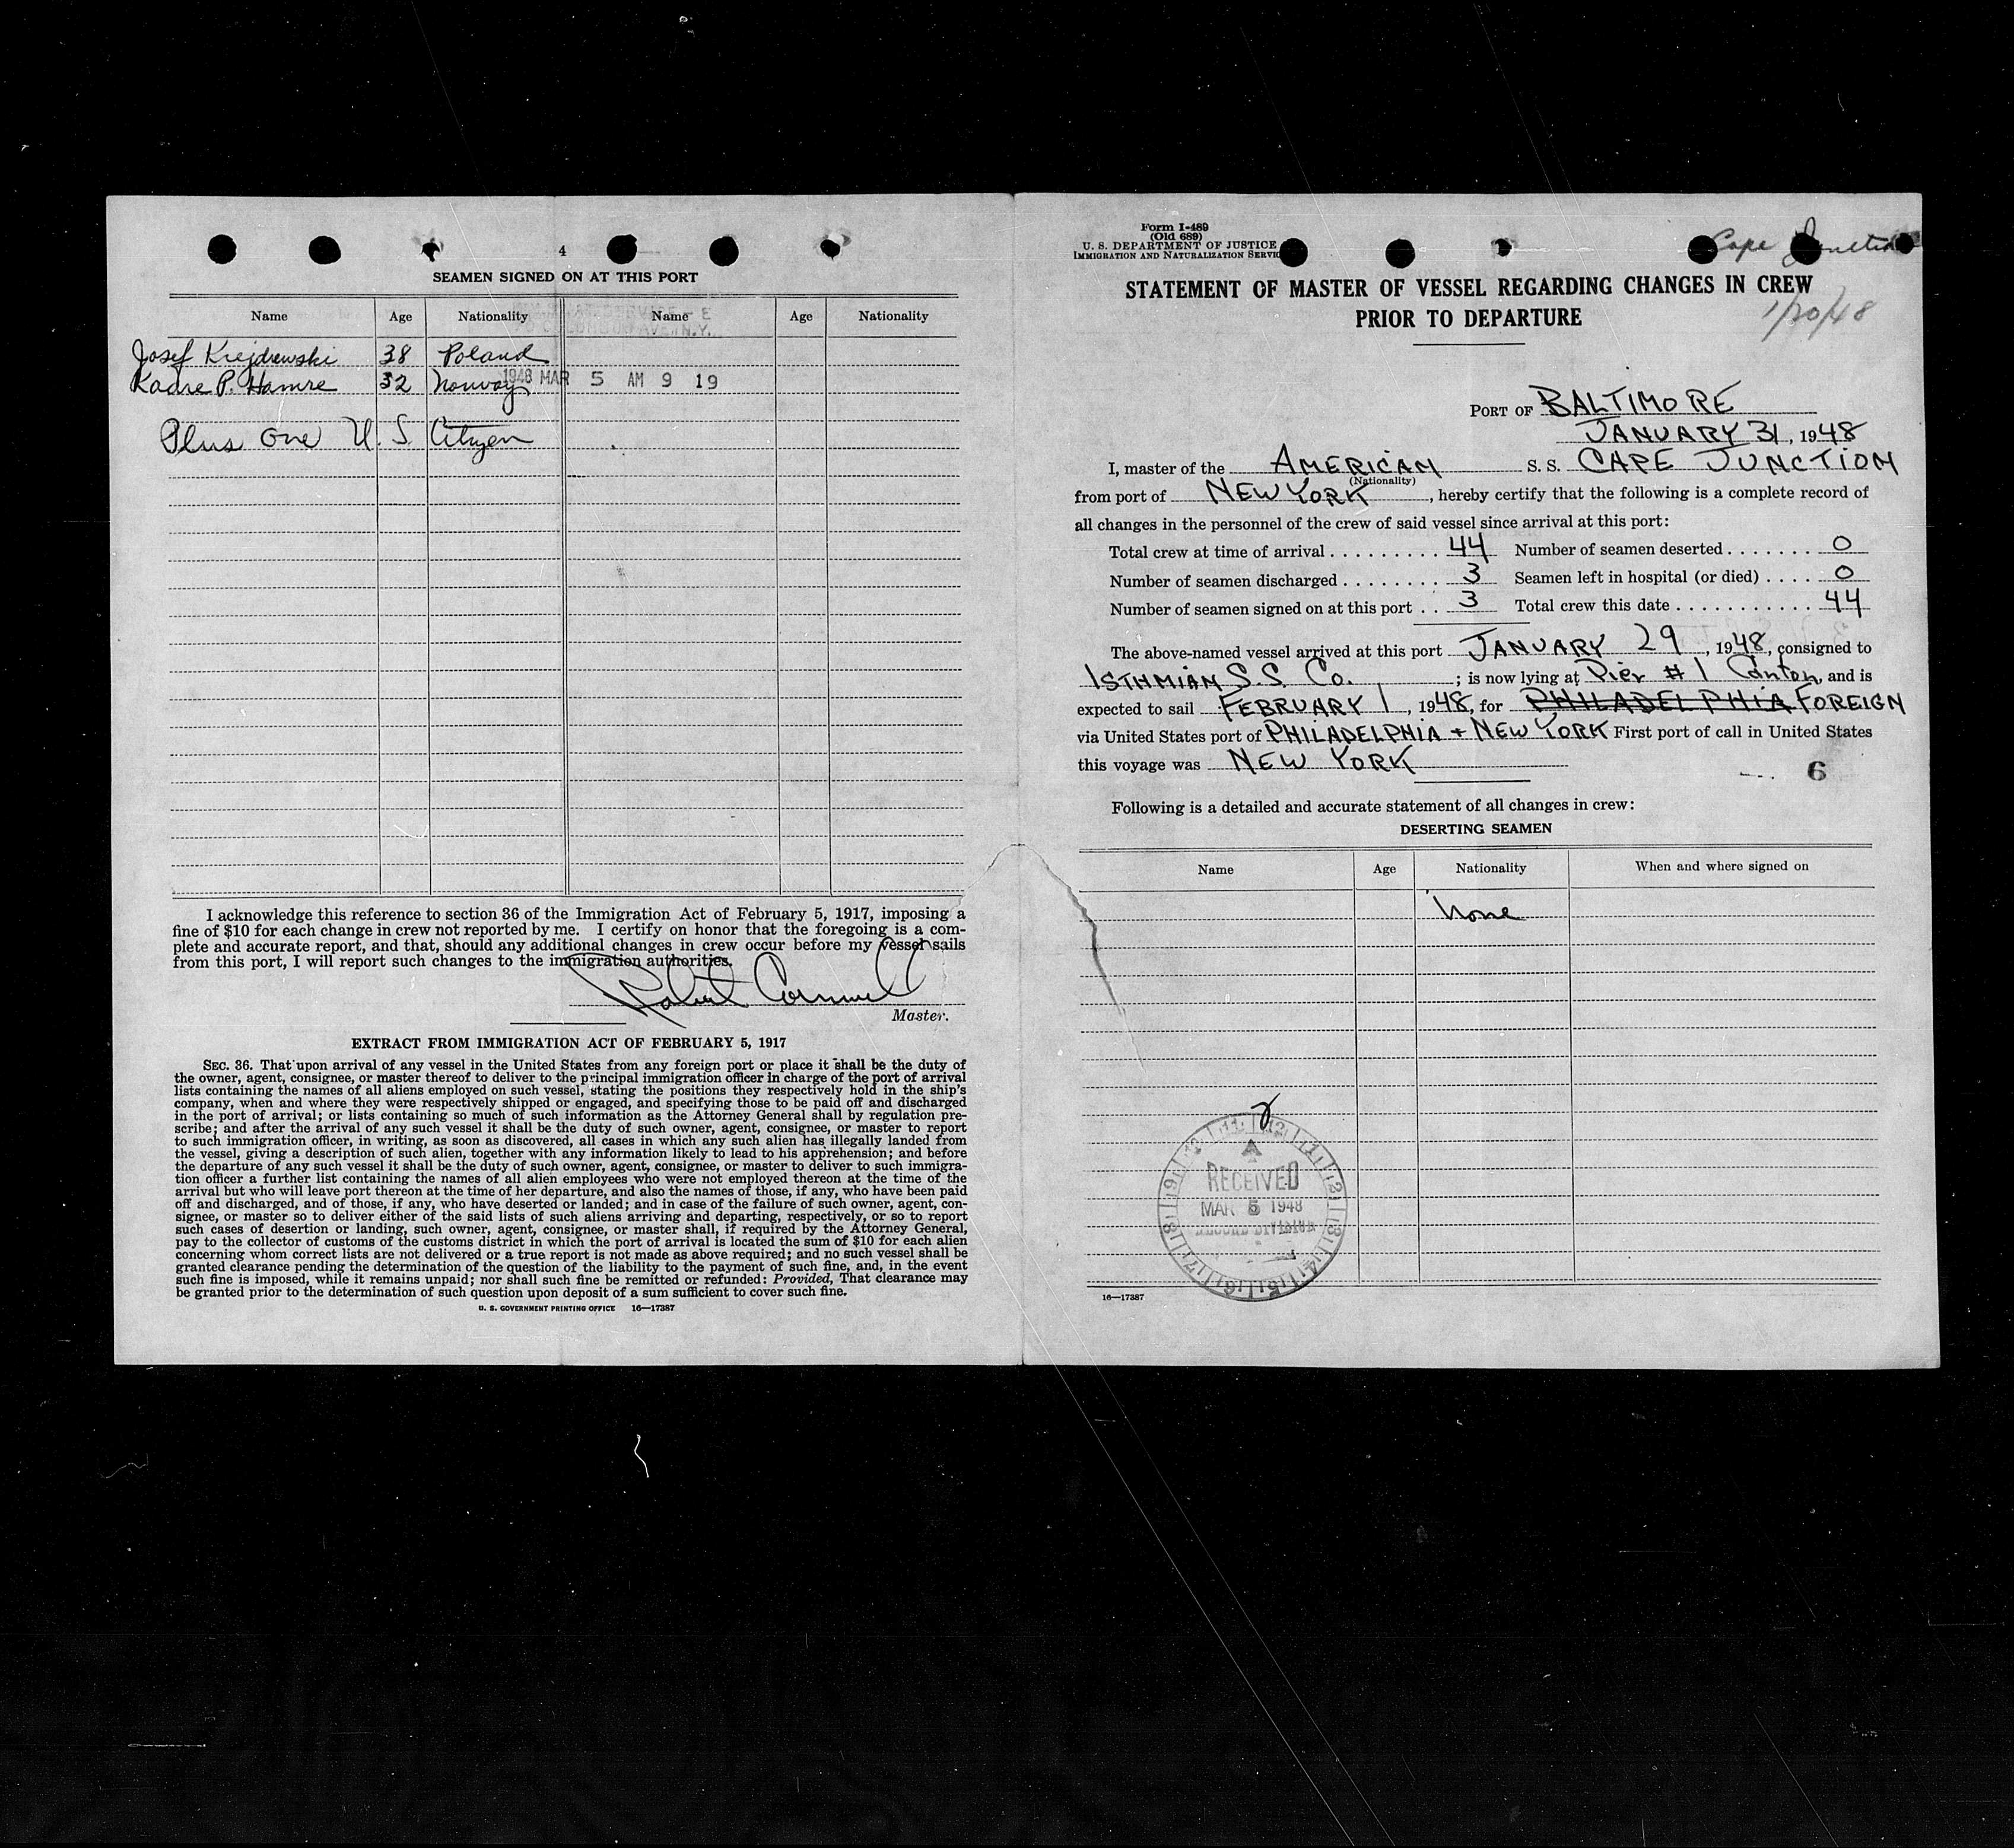 4
SEAMEN SIGNED ON AT THIS PORT
Name Age Nationality Name Age Nationality
Josef Krejdrewski 38 Poland
Kadre P. Hamre 32 Norway
1948 MAR 5 AM 9 19
Plus One U. S. Citizen
I acknowledge this reference to section 36 of the Immigration Act of February 5, 1917, imposing a
fine of $10 for each change in crew not reported by me. I certify on honor that the foregoing is a com-
plete and accurate report, and that, should any additional changes in crew occur before my vessel sails
from this port, I will report such changes to the immigration authorities.
Robert Cornwell
Master.
EXTRACT FROM IMMIGRATION ACT OF FEBRUARY 5, 1917
SEC. 36. That upon arrival of any vessel in the United States from any foreign port or place it shall be the duty of
the owner, agent, consignee, or master thereof to deliver to the principal immigration officer in charge of the port of arrival
lists containing the names of all aliens employed on such vessel, stating the positions they respectively hold in the ship's
company, when and where they were respectively shipped or engaged, and specifying those to be paid off and discharged
in the port of arrival; or lists containing so much of such information as the Attorney General shall by regulation pre-
scribe; and after the arrival of any such vessel it shall be the duty of such owner, agent, consignee, or master to report
to such immigration officer, in writing, as soon as discovered, all cases in which any such alien has illegally landed from
the vessel, giving a description of such alien, together with any information likely to lead to his apprehension; and before
the departure of any such vessel it shall be the duty of such owner, agent, consignee, or master to deliver to such immigra-
tion officer a further list containing the names of all alien employees who were not employed thereon at the time of the
arrival but who will leave port thereon at the time of her departure, and also the names of those, if any, who have been paid
off and discharged, and of those, if any, who have deserted or landed; and in case of the failure of such owner, agent, con-
signee, or master so to deliver either of the said lists of such aliens arriving and departing, respectively, or so to report
such cases of desertion or landing, such owner, agent, consignee, or master shall, if required by the Attorney General,
pay to the collector of customs of the customs district in which the port of arrival is located the sum of $10 for each alien
concerning whom correct lists are not delivered or a true report is not made as above required; and no such vessel shall be
granted clearance pending the determination of the question of the liability to the payment of such fine, and, in the event
such fine is imposed, while it remains unpaid; nor shall such fine be remitted or refunded: Provided, That clearance may
be granted prior to the determination of such question upon deposit of a sum sufficient to cover such fine.
U. S. GOVERNMENT PRINTING OFFICE 16—17387
Form I-489
(Old 689)
U. S. DEPARTMENT OF JUSTICE
IMMIGRATION AND NATURALIZATION SERVIC
Cape Junction
STATEMENT OF MASTER OF VESSEL REGARDING CHANGES IN CREW
PRIOR TO DEPARTURE
1/20/48
PORT OF BALTIMORE
JANUARY 31, 1948
I, master of the AMERICAN S. S. CAPE JUNCTION
(Nationality)
from port of NEW YORK, hereby certify that the following is a complete record of
all changes in the personnel of the crew of said vessel since arrival at this port:
Total crew at time of arrival 44 Number of seamen deserted 0
Number of seamen discharged 3 Seamen left in hospital (or died) 0
Number of seamen signed on at this port 3 Total crew this date 44
The above-named vessel arrived at this port JANUARY 29, 1948, consigned to
ISTHMIAN S S Co. ; is now lying at Pier # 1 Canton, and is
expected to sail FEBRUARY 1, 1948, for PHILADELPHIA FOREIGN
via United States port of PHILADELPHIA + NEW YORK First port of call in United States
this voyage was NEW YORK
6
Following is a detailed and accurate statement of all changes in crew:
DESERTING SEAMEN
Name Age Nationality When and where signed on
None
RECEIVED
MAR 5 1948
RECORD DIVISION
16—17387